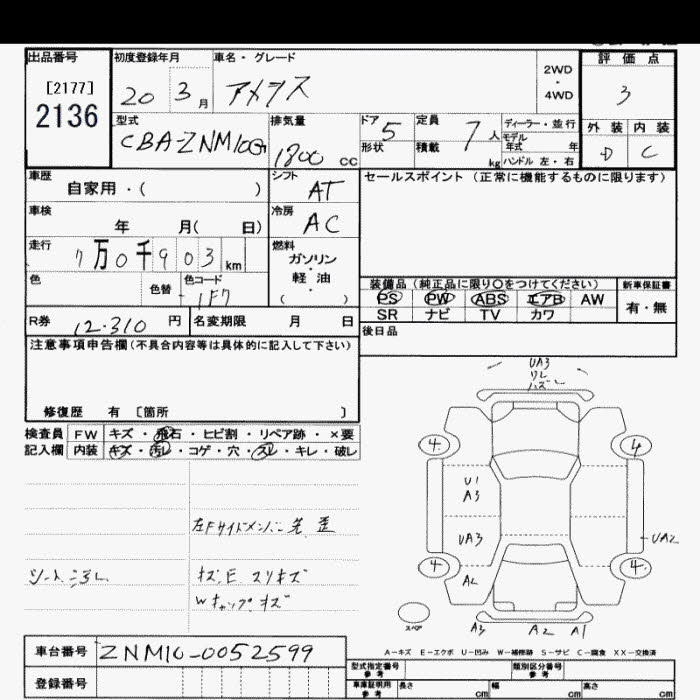 出品番号
[2177]
2136
初度登録年月
20 3月
車名・グレード
アイシス
2WD
・
4WD
評価点
3
外装 内装
D C
型式
CBA-ZNM10G
排気量
1800 cc
ドア 5
形状
定員 7人
積載 kg
ディーラー・並行
モデル
年式 年
ハンドル 左・右
車歴
自家用・( )
シフト
AT
車検
年 月( 日)
冷房
AC
走行
7万0千903km
燃料
ガソリン
・
軽油
( )
色 色替 色コード
1F7
セールスポイント (正常に機能するものに限ります)
装備品 (純正品に限り○をつけてください)
PS PW ABS エアB AW
SR ナビ TV カワ
新車保証書
有・無
R券 12.310 円
名変期限 月 日
後日品
注意事項申告欄(不具合内容等は具体的に記入して下さい)
修復歴 有 [箇所 ]
検査員
記入欄
FW キズ・飛石・ヒビ割・リペア跡・×要
内装 キズ・汚レ・コゲ・穴・スレ・キレ・破レ
UA3
ワレ
ハズレ
4 4
U1
A3
UA3
UA2
4 4
A2
スペア
A3 A2 A1
左Fサイドメンバー先歪
シートゴミ
キズ、E スリキズ
Wキャップキズ
A-キズ E-エクボ U-凹み W-補修跡 S-サビ C-腐食 XX-交換済
車台番号 ZNM10-0052599
登録番号
型式指定番号
参考
類別区分番号
参考
車庫証明用
参考
長さ cm
幅 cm
高さ cm